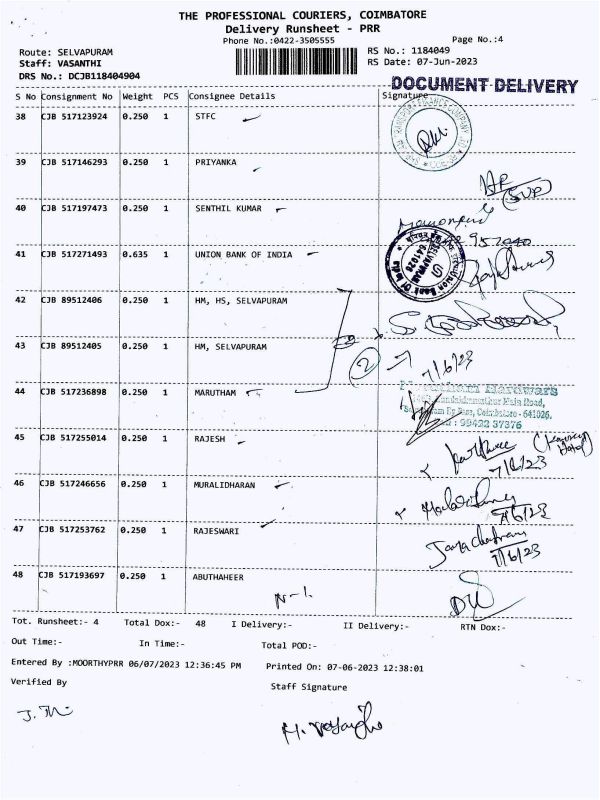 THE PROFESSIONAL COURIERS, COIMBATORE
Delivery Runsheet - PRR
Phone No.:0422-3505555 Page No.:4
Route: SELVAPURAM RS No.: 1184049
Staff: VASANTHI RS Date: 07-Jun-2023
DRS No.: DCJB118404904
DOCUMENT DELIVERY
S No Consignment No Weight PCS Consignee Details Signature
38 CJB 517123924 0.250 1 STFC
39 CJB 517146293 0.250 1 PRIYANKA
(SVP)
40 CJB 517197473 0.250 1 SENTHIL KUMAR
41 CJB 517271493 0.635 1 UNION BANK OF INDIA
Union Bank Of India
SELVAPURAM
641026
42 CJB 89512406 0.250 1 HM, HS, SELVAPURAM
43 CJB 89512405 0.250 1 HM, SELVAPURAM
2 7/6/23
44 CJB 517236898 0.250 1 MARUTHAM
Main Road,
Coimbatore - 641026.
99422 37376
45 CJB 517255014 0.250 1 RAJESH
7/6/23
46 CJB 517246656 0.250 1 MURALIDHARAN
7/6/23
47 CJB 517253762 0.250 1 RAJESWARI
7/6/23
48 CJB 517193697 0.250 1 ABUTHAHEER
Tot. Runsheet:- 4 Total Dox:- 48 I Delivery:- II Delivery:- RTN Dox:-
Out Time:- In Time:- Total POD:-
Entered By :MOORTHYPRR 06/07/2023 12:36:45 PM Printed On: 07-06-2023 12:38:01
Verified By Staff Signature